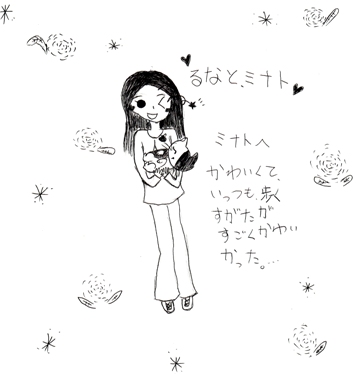 るなと、ミナト
ミナトへ
かわいくて、
いっつも、歩く
すがたが
すごくかわい
かった。…